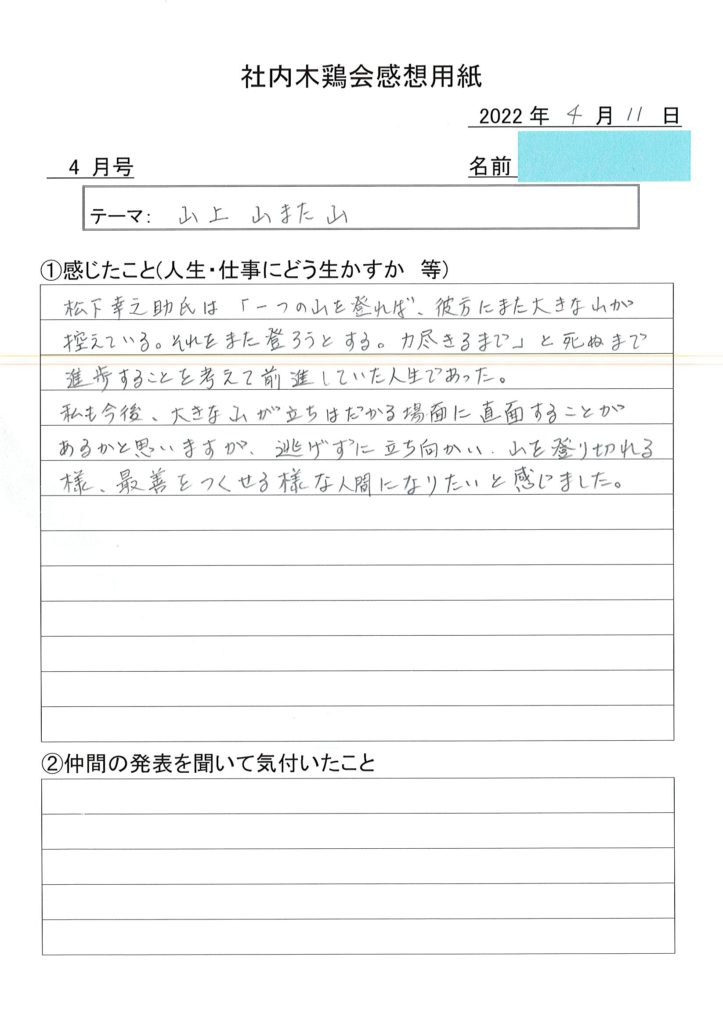 社内木鶏会感想用紙
2022 年 4 月 11 日
4 月号
名前
テーマ: 山上 山また山
①感じたこと(人生・仕事にどう生かすか 等)
松下幸之助氏は「一つの山を登れば、彼方にまた大きな山が
控えている。それをまた登ろうとする。力尽きるまで」と死ぬまで
進歩することを考えて前進していた人生であった。
私も今後、大きな山が立ちはだかる場面に直面することが
あるかと思いますが、逃げずに立ち向かい、山を登り切れる
様、最善をつくせる様な人間になりたいと感じました。
②仲間の発表を聞いて気付いたこと